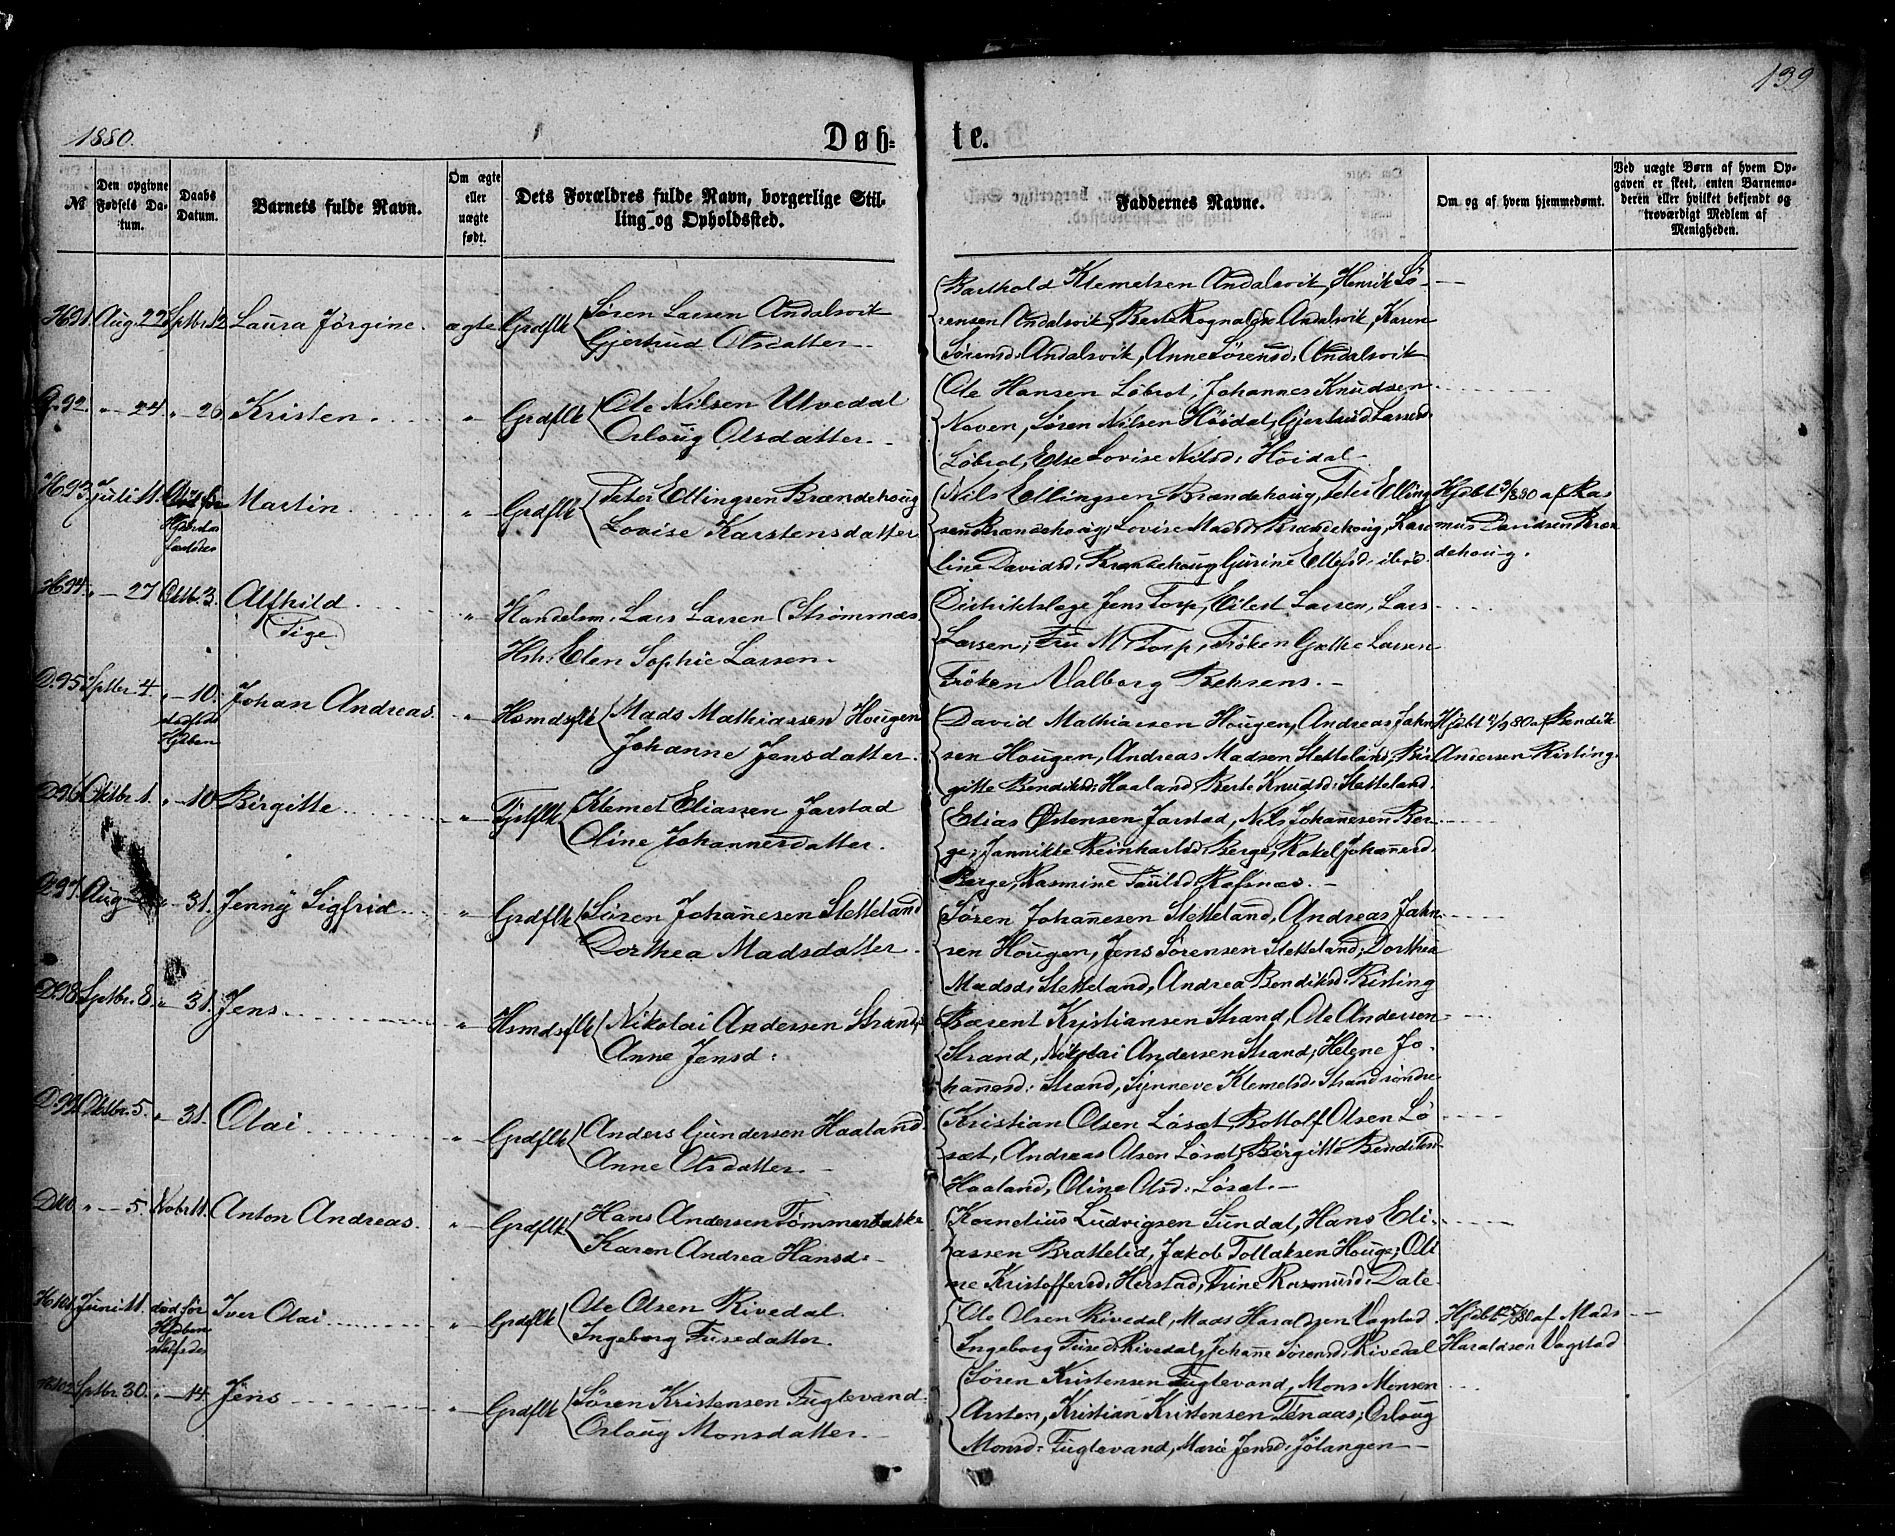 139
1880.
Døb=
te.
№
Den opgivne Fødsels Datum.
Daabs Datum.
Barnets fulde Navn.
Om ægte eller uægte født.
Dets Forældres fulde Navn, borgerlige Stilling og Opholdssted.
Faddernes Navne.
Om og af hvem hjemmedømt.
Ved uægte Børn af hvem Opgaven er skeet, enten Barnemoderen eller hvilket bekjendt og troværdigt Medlem af Menigheden.
H 91. Aug. 22. Sptbr. 12 Laura Jørgine. ægte Grdflk
Søren Larsen Andalsvik
Gjertrud Olsdatter.
Barthold Klemetsen Andalsvik, Henrik Sø-
rensen Andalsvik, Berte Rognaldsd. Andalsvik, Karen
Sørensd: Andalsvik, Anne Sørensd. Andalsvik
92. " 24 " 26 Kristen. " Grdflk
Ole Nilsen Utvedal
Orloug Olsdatter.
Ole Hansen Løbrot, Johannes Knudsen
Noven, Søren Nilsen Høidal, Gjertrud Larsensd.
Løbrot, Else Lovise Nilsd: Høidal
H 93 Juli 11. Martin. " Grdflk
Peter Ellingsen Brændehoug
Lovise Karstensdatter
Nils Ellingsen Brændehoug, Peter Elling
sen Brændehoug, Lovise Madsd: Brændehoug, Karo
line Davidsd. Brændehoug, Gurine Ellefsd. ibid.
Hjdbt /80 af Ras
mus Davidsen Bræn
dehoug.
H 94. " 27 Oktb. 3. Alfhild
(Pige)
" Handelsm. Lars Larsen Strømmes
Hstr: Elen Sophie Larsen.
Distriktslæge Jens Torp, Eilert Larsen, Lars
Larsen, Fru M. Torp, Frøken Larsen
Frøken Valborg Behrens.
D. 95 Sptbr. 4. " 10. Johan Andreas. " Hsmdsflk
stadfæst
Hjdben
Mads Mathiassen Hougen
Johanne Jensdatter.
David Mathiassen Hougen, Andreas Jahn
sen Hougen, Andreas Madsen Stetteland, Bir
gitte Bendiksd: Haaland, Berte Knudsd. Stetteland.
Hjdbt /9 80 af Bendik
Andersen Risting.
D. 96 Oktbr. 1. " 10 Birgitte " Tjstflk
Klemet Eliassen Jarstad
Oline Johannesdatter.
Elias Østensen Jarstad, Nils Johannesen Ber-
ge, Jannikke Reinhartsd. Berge, Rakel Johannesd.
Berge, Rasmine Paulsd. Rafsnæs.
97 Aug " 31. Jenny Sigfrid " Grdflk
Søren Johannesen Stetteland
Dorthea Madsdatter.
Søren Johannesen Stetteland, Andreas Jahn
sen Hougen, Jens Sørensen Stetteland, Dorthea
Madsd. Stetteland, Andrea Bendiksd. Risting
D. 98 Sptbr. 8. " 31. Jens " Hsmdsflk
Nikolai Andersen Strand,
Anne Jensd:
Bærent Kristiansen Strand, Ole Andersen
Strand, Nikolai Andersen Strand, Helene Jo-
hannesd: Strand, Synneve Klemetsd. Strand søndre
D. 99 Oktbr. 5. " 31. Olai " Grdflk
Anders Gundersen Haaland.
Anne Olsdatter.
Kristian Olsen Løset, Bottolf Olsen Lø
set, Andreas Olsen Løset, Birgitte Bendiksd
Haaland, Oline Olsd. Løset.
D 100 " 5. Nobr 11. Anton Andreas. " Grdflk
Hans Andersen Tømmerbakke
Karen Andrea Hansd.
Kornelius Ludvigsen Sundal, Hans Eli-
assen Brattelid, Jakob Tollaksen Houge, Oli
ne Kristoffersd. Herstad, Trine Rasmusd. Dale
H 101. Juni 11. død før
Hjdben
stadfædes
Iver Olai " Grdflk
Ole Olsen Rivedal.
Ingeborg Tusedatter.
Ole Olsen Rivedal, Mads Haraldsen Vagstad
Ingeborg Tused. Rivedal, Johanne Sørensd: Rivedal
Hjdbt /80 af Mads
Haraldsen Vagstad
H 102 Sptbr 30. " 14. Jens " Grdflk
Søren Kristensen Fuglevand.
Orloug Monsdatter.
Søren Kristensen Fuglevand, Mons Monsen
Aasten, Kristian Kristensen Tenaas, Orloug
Monsd: Fuglevand, Marie Jensd. Jølangen